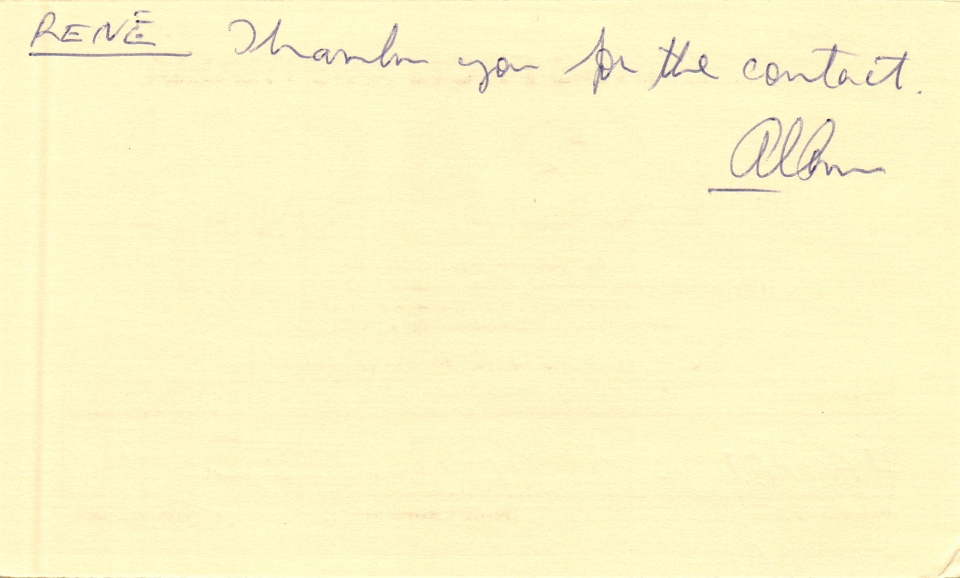 RENÉ Thank you for the contact.